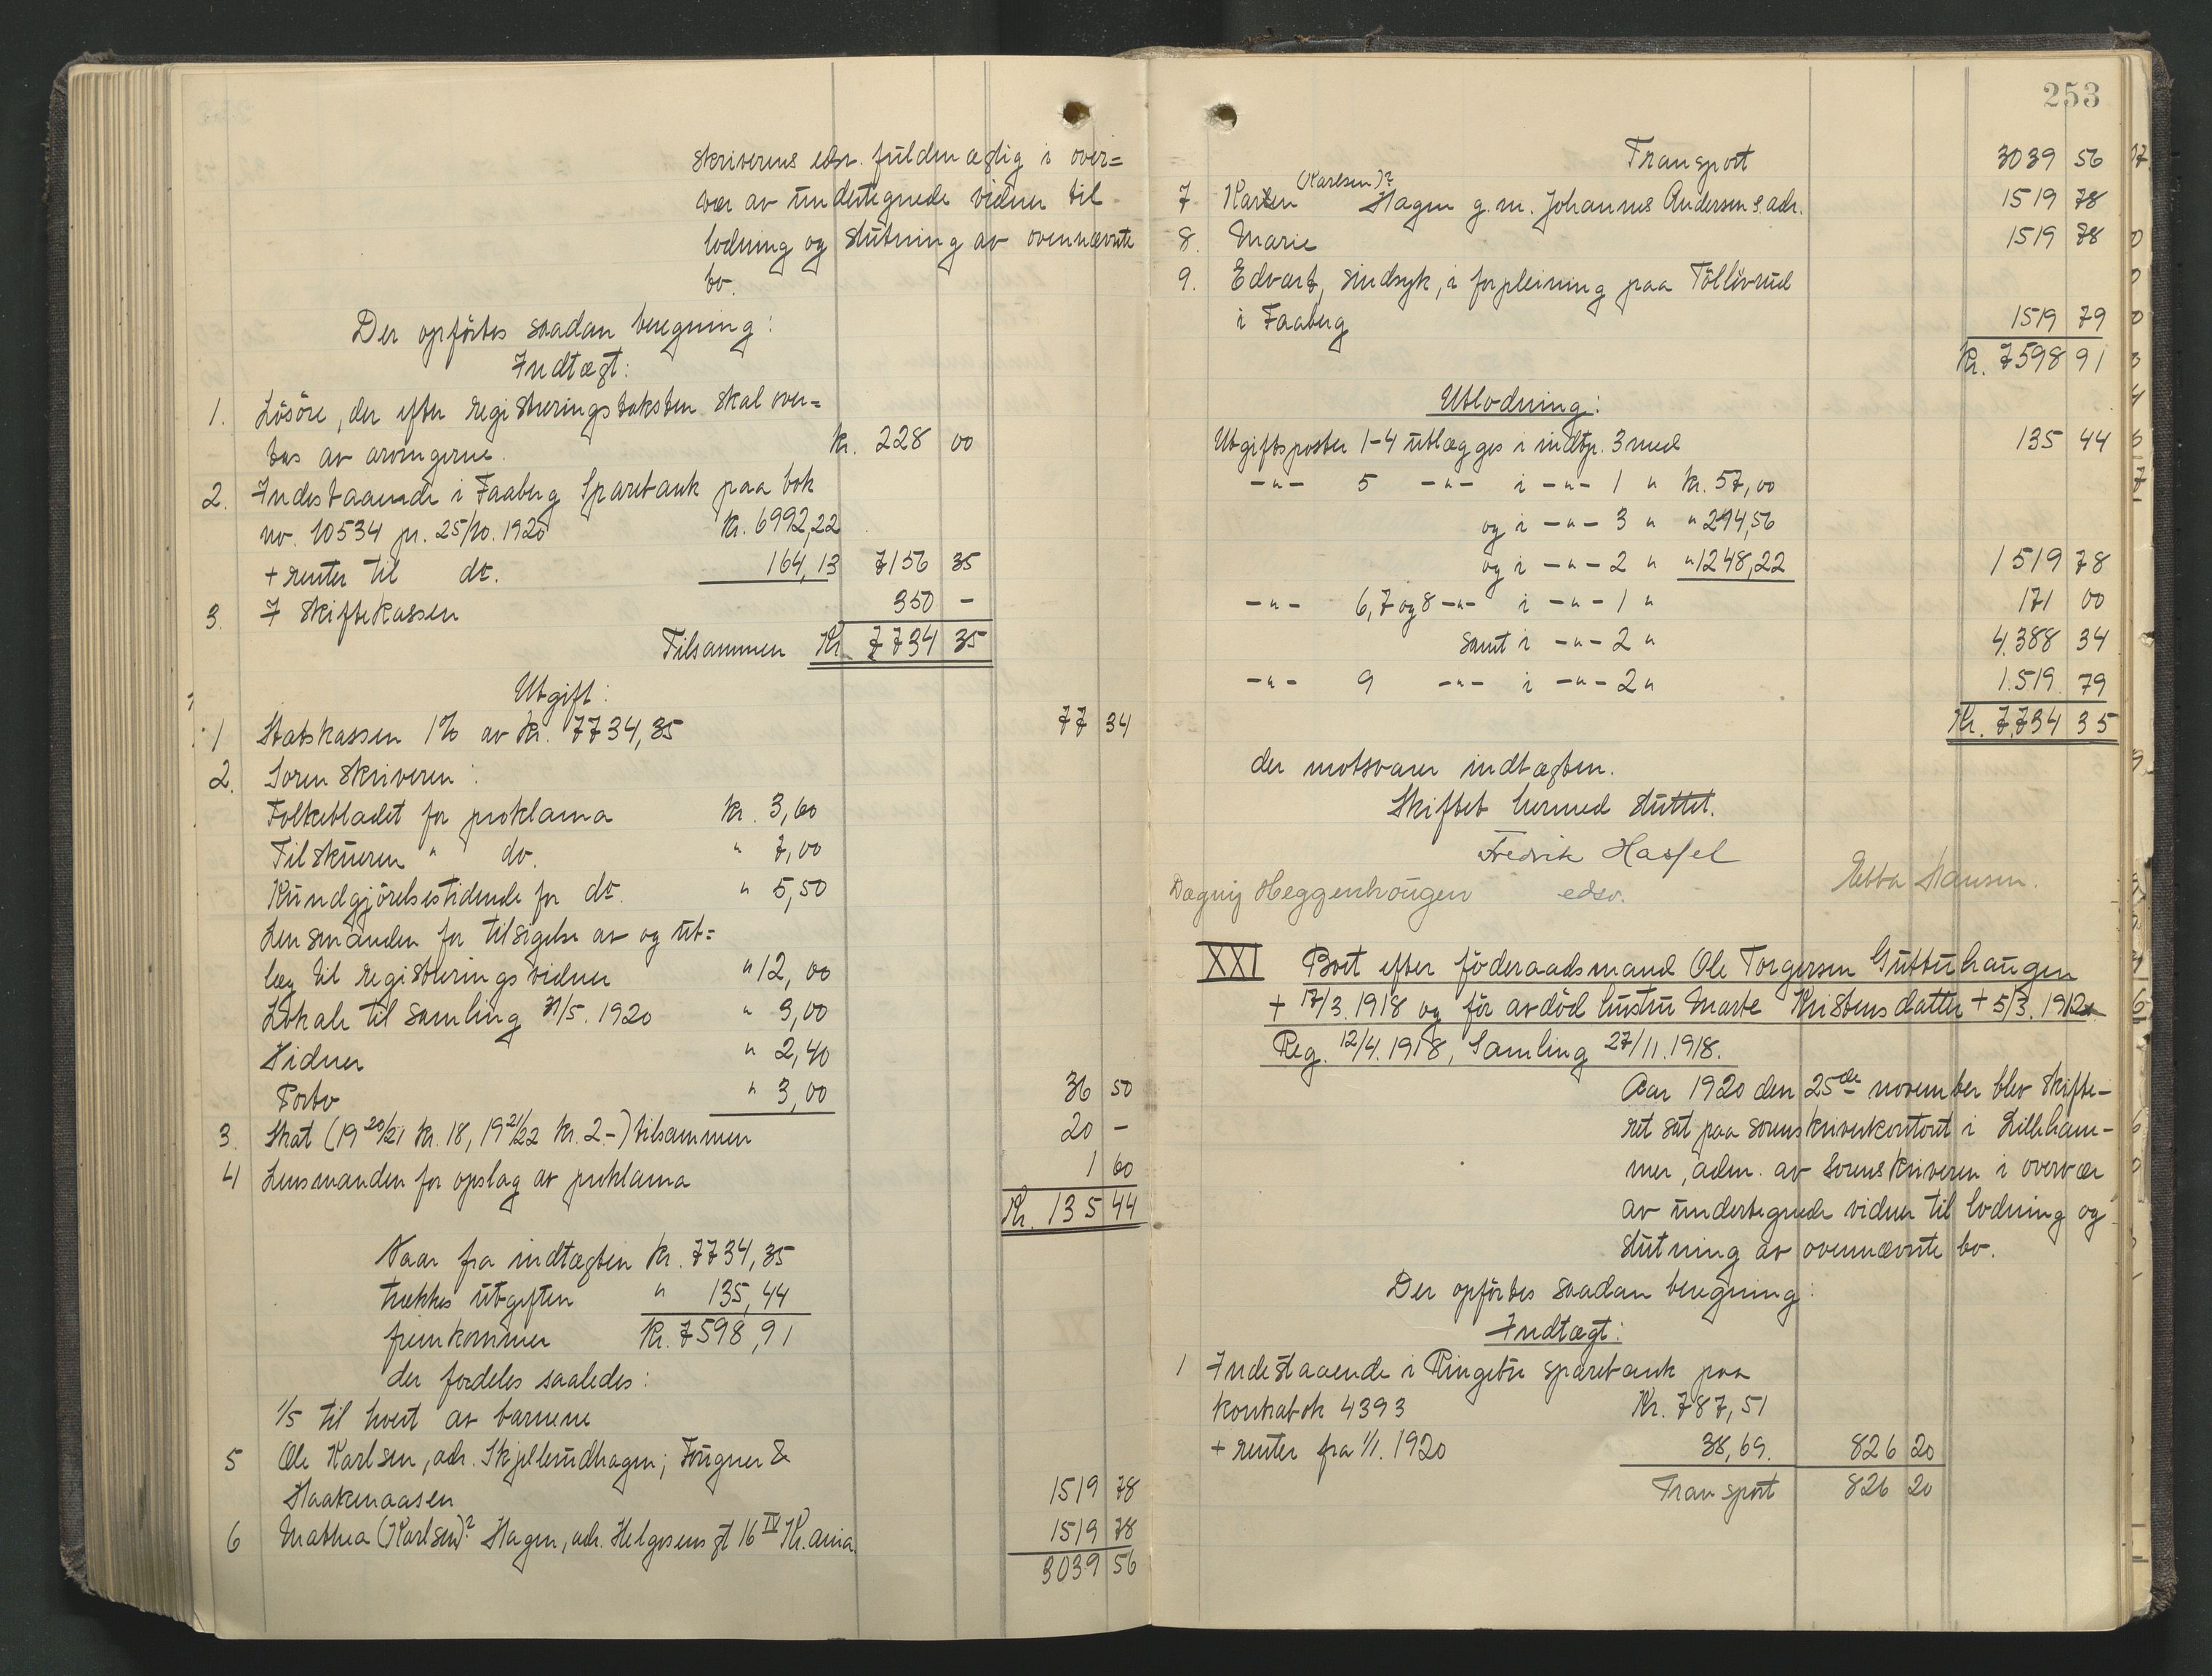 skriverens edsv. fuldmægtig i over=
vær av undertegnede vidner til
lodning og slutning av ovennævnte
bo.
Der opførtes saadan beregning:
Indtægt:
1. Løsøre, der efter registreringstaksten skal over=
tas av arvingerne. kr. 228 00
2. Indestaaende i Faaberg Sparebank paa bok
no. 10534 pr. 25/10. 1920 kr. 6992,22
+ renter til do. 164,13 7156 35
3. I skiftekassen 350 -
Tilsammen Kr. 7734 35
Utgift:
1 Statskassen 1% av kr. 7734,35 77 34
2. Sorenskriveren:
Folkebladet for proklama kr. 3,60
Tilskueren " do. " 7,00
Kundgjørelsestidende for do. " 5,50
Lensmanden for tilsigelse av og ut=
læg til registreringsvidner " 12,00
Lokale til samling 31/5. 1920 " 3,00
Vidner " 2,40
Porto " 3,00 36 50
3. Skat (1920/21 kr. 18, 1921/22 kr. 2.-) tilsammen 20 -
4 Lensmanden for opslag av proklama 1 60
Kr. 135 44
Naar fra indtægten kr. 7734,35
trækkes utgiften " 135,44
fremkommer kr. 7598,91
der fordeles saaledes:
1/5 til hvert av barnene
5 Ole Karlsen, adr. Skjellerudhagen; Fougner &
Haakenaasen 1519 78
6 Mathea (Karlsen)? Hagen, adr. Helgesens gt 16 IV Kr.ania 1519 78
3039 56
253
Transport 3039 56
(Karlsen)?
7 Karen Hagen g.m. Johannes Andersen s. adr. 1519 78
8. Marie 1519 78
9. Edvart, sindsyk, i forpleining paa Tollivrud
i Faaberg 1519 79
kr. 7598 91
Utlodning:
Utgiftsposter 1-4 utlægges i indtp. 3 med 135 44
-"- 5 -"- i -"- 1 " kr. 57,00
og i -"- 3 " " 214,56
og i -"- 2 " " 1248,22 1519 78
-"- 6,7 og 8 -"- i -"- 1 " 171 00
samt i -"- 2 " 4.388 34
-"- 9 -"- i -"- 2 " 1.519 79
Kr. 7.734 35
der motsvarer indtægten.
Skiftet hermed sluttet.
Fredrik Hassel
Dagny Heggenhougen edsv. Ebba Hansen.
XXI Boet efter føderaadsmand Ole Torgersen Guttuhaugen
+ 17/3. 1918 og før avdød hustru Marte Kristensdatter + 5/3. 1912.
Reg. 12/4. 1918, Samling 27/11. 1918.
Aar 1920 den 25de november blev skifte-
ret sat paa sorenskriverkontoret i Lilleham-
mer, adm. av sorenskriveren i overvær
av undertegnede vidner til lodning og
slutning av ovennævnte bo.
Der opførtes saadan beregning:
Indtægt:
1 Indestaaende i Ringebu sparebank paa
kontrabok 4393 Kr. 787,51
+ renter fra 1/1. 1920 38,69. 826 20
Transport 826 20